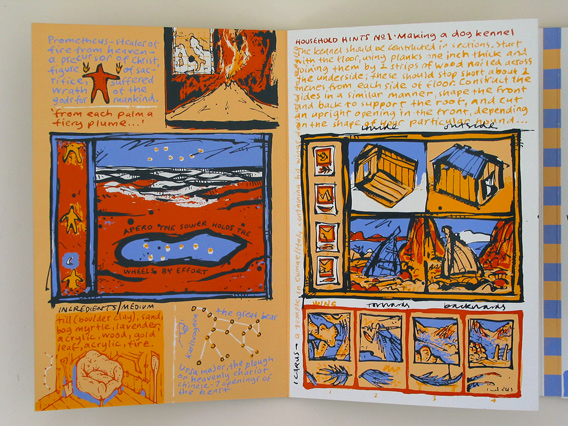 Prometheus-stealer of
fire from heaven-
a precursor of Christ,
figure of sac-
rifice suffered
wrath of the
gods for mankind.
from each palm a
fiery plume...!
AEPRO THE SOWER HOLDS THE
WHEELS BY EFFORT
INGREDIENTS/MEDIUM
till (boulder clay), sand,
bog myrtle, lavender,
acrylic, wood, gold
leaf, acrylic, fire.
the great bear
Ursa major, the plough
heavenly chariot,
chinese-7 openings of
the heart
HOUSEHOLD HINTS NO1-Making a dog kennel
The kennel should be constructed in sections. Start
with the floor, using planks one inch thick and
joining them by 2 strips of wood nailed across
the underside; these should stop short about 2
inches from each side of floor. Construct the
sides in a similar manner, shape the front
and back to support the roof, and cut
an upright opening in the front, depending
on the shape of your particular hound...
inside outside
WING forwards backwards
ICARUS-
1 2 3 4